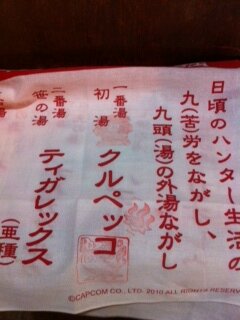 日頃のハンター生活の
九(苦)労をながし、
九頭(湯)の外湯ながし
一番湯
初湯
クルペッコ
二番湯
笹の湯
ティガレックス
(亜種)
©CAPCOM CO., LTD. 2010 ALL RIGHTS RESERVE